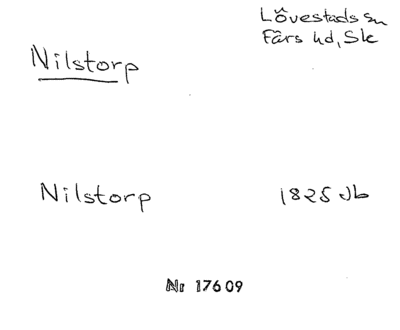 Lövestads sn
Färs hd, Sk
Nilstorp
Nilstorp 1825 Jb
Nr 17609